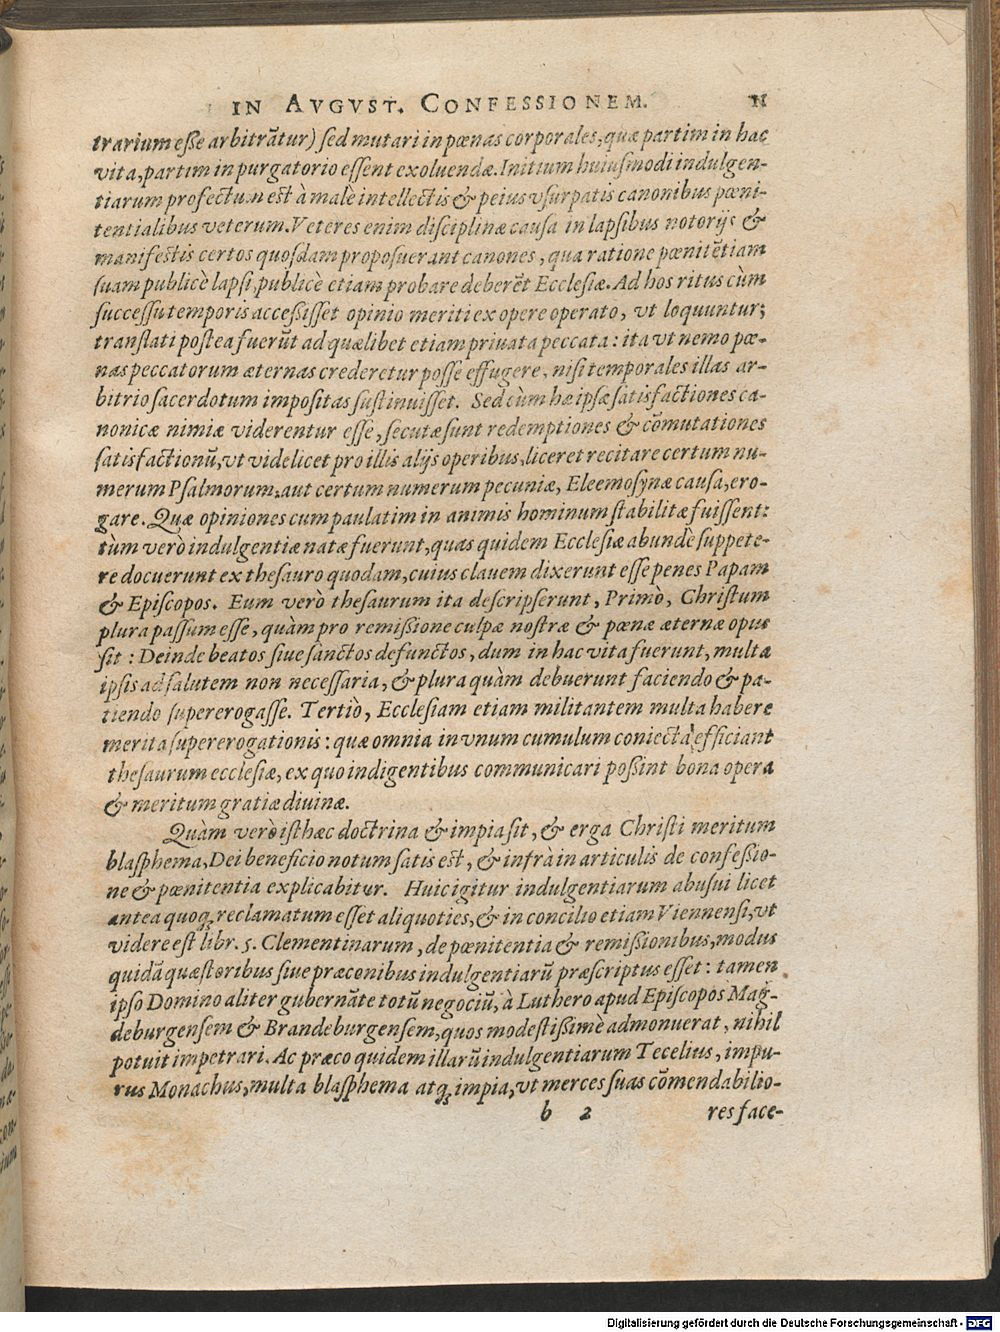 IN AVGVST. CONFESSIONEM. 11
trarium esse arbitrãtur) sed mutari in pœnas corporales, quæ partim in hac
vita, partim in purgatorio essent exoluendæ. Initium huiusmodi indulgen-
tiarum profectum est à malè intellectis & peius vsurpatis canonibus pœni-
tentialibus veterum. Veteres enim disciplinæ causa in lapsibus notorijs &
manifestis certos quosdam proposuerant canones, qua ratione pœnitẽtiam
suam publicè lapsi, publicè etiam probare deberẽt Ecclesiæ. Ad hos ritus cùm
successu temporis accessisset opinio meriti ex opere operato, vt loquuntur;
translati postea fuerũt ad quælibet etiam priuata peccata: ita vt nemo pœ-
nas peccatorum æternas crederetur posse effugere, nisi temporales illas ar-
bitrio sacerdotum impositas sustinuisset. Sed cùm hæ ipsæ satisfactiones ca-
nonicæ nimiæ viderentur esse, secutæ sunt redemptiones & cõmutationes
satisfactionũ, vt videlicet pro illis alijs operibus, liceret recitare certum nu-
merum Psalmorum, aut certum numerum pecuniæ, Eleemosynæ causa, ero-
gare. Quæ opiniones cum paulatim in animis hominum stabilitæ fuissent:
tùm verò indulgentiæ natæ fuerunt, quas quidem Ecclesiæ abundè suppete-
re docuerunt ex thesauro quodam, cuius clauem dixerunt esse penes Papam
& Episcopos. Eum verò thesaurum ita descripserunt, Primò, Christum
plura passum esse, quàm pro remissione culpæ nostræ & pœnæ æternæ opus
sit: Deinde beatos siue sanctos defunctos, dum in hac vita fuerunt, multa
ipsis ad salutem non necessaria, & plura quàm debuerunt faciendo & pa-
tiendo supererogasse. Tertiò, Ecclesiam etiam militantem multa habere
merita supererogationis: quæ omnia in vnum cumulum coniecta efficiant
thesaurum ecclesiæ, ex quo indigentibus communicari possint bona opera
& meritum gratiæ diuinæ.
Quàm verò isthæc doctrina & impia sit, & erga Christi meritum
blasphema, Dei beneficio notum satis est, & infrà in articulis de confessio-
ne & pœnitentia explicabitur. Huic igitur indulgentiarum abusui licet
antea quoq; reclamatum esset aliquoties, & in concilio etiam Viennensi, vt
videre est libr. 5. Clementinarum, de pœnitentia & remissionibus, modus
quidã quæstoribus siue præconibus indulgentiarũ præscriptus esset: tamen
ipso Domino aliter gubernãte totũ negociũ, à Luthero apud Episcopos Mag-
deburgensem & Brandeburgensem, quos modestissimè admonuerat, nihil
potuit impetrari. Ac præco quidem illarũ indulgentiarum Tecelius, impu-
rus Monachus, multa blasphema atq; impia, vt merces suas cõmendabilio-
b 2 res face-
Digitalisierung gefördert durch die Deutsche Forschungsgemeinschaft - DFG